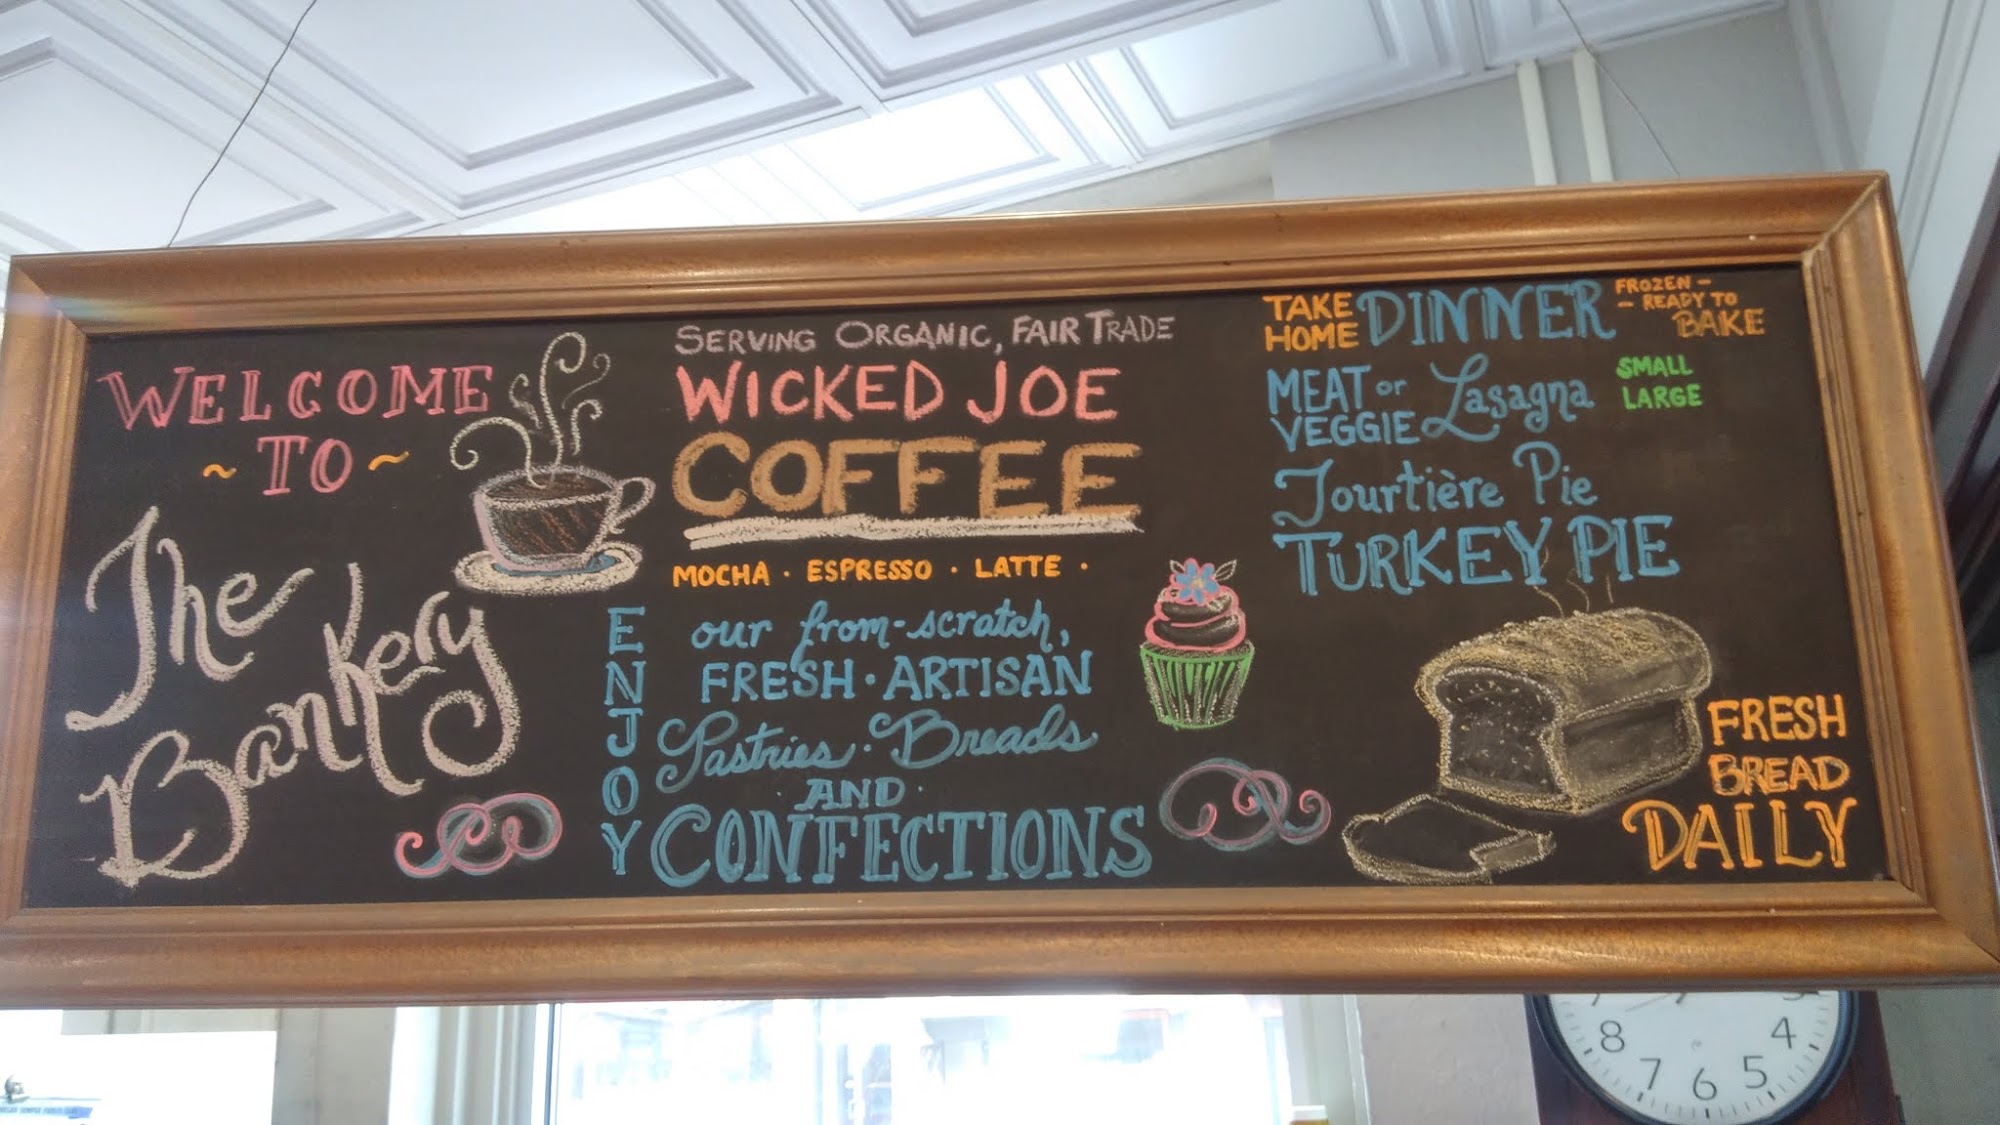 WELCOME
~ TO ~
The
Bankery
SERVING ORGANIC, FAIR TRADE
WICKED JOE
COFFEE
MOCHA · ESPRESSO · LATTE ·
ENJOY
our from-scratch,
FRESH · ARTISAN
Pastries · Breads
· AND ·
CONFECTIONS
TAKE HOME DINNER
FROZEN -
- READY TO
BAKE
MEAT or
VEGGIE Lasagna
SMALL
LARGE
Tourtière Pie
TURKEY PIE
FRESH
BREAD
DAILY
8 7 6 5 4